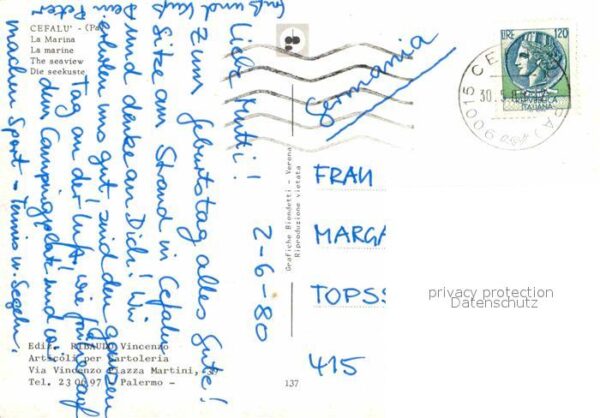 CEFALU' - (Pa
La Marina
La marine
The seaview
Die seekuste
2-6-80
Liebe Mutti!
Zum Geburtstag alles Gute!
Sitze am Strand in Cefalu
und denke an Dich! Wir
erholen uns gut sind den ganzen
Tag an der Luft, wie
dem Campingplatz und
machen Sport - Tennis u. Segeln.
Gruß und Kuß
Dein Peter
Germania
LIRE 120
ITALIANA
90015 CEFALU (PA)
30.
FRAU
MARGA
TOPSS
415
privacy protection
Datenschutz
Grafiche Biondetti - Verona
Riproduzione vietata
Ediz. RIBAUDO Vincenzo
Articoli per Cartoleria
Via Vincenzo Piazza Martini,
Tel. 23 06 97 Palermo -
137